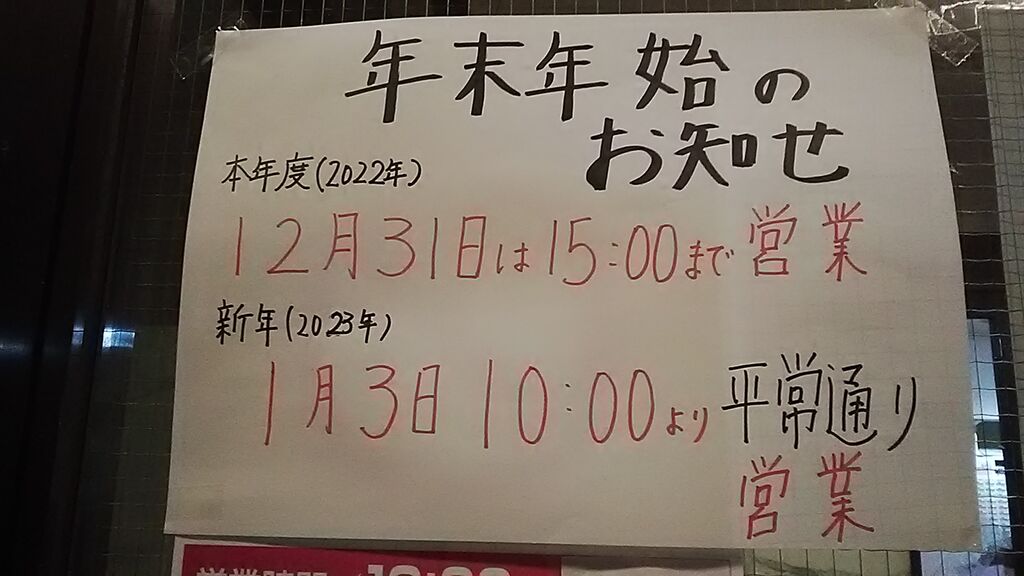 年末年始の
お知らせ
本年度(2022年)
12月31日は15:00まで営業
新年(2023年)
1月3日10:00より平常通り
営業